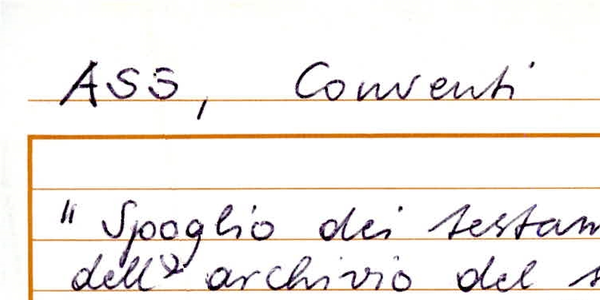 ASS, Conventi
"Spoglio dei testam
dell' archivio del s